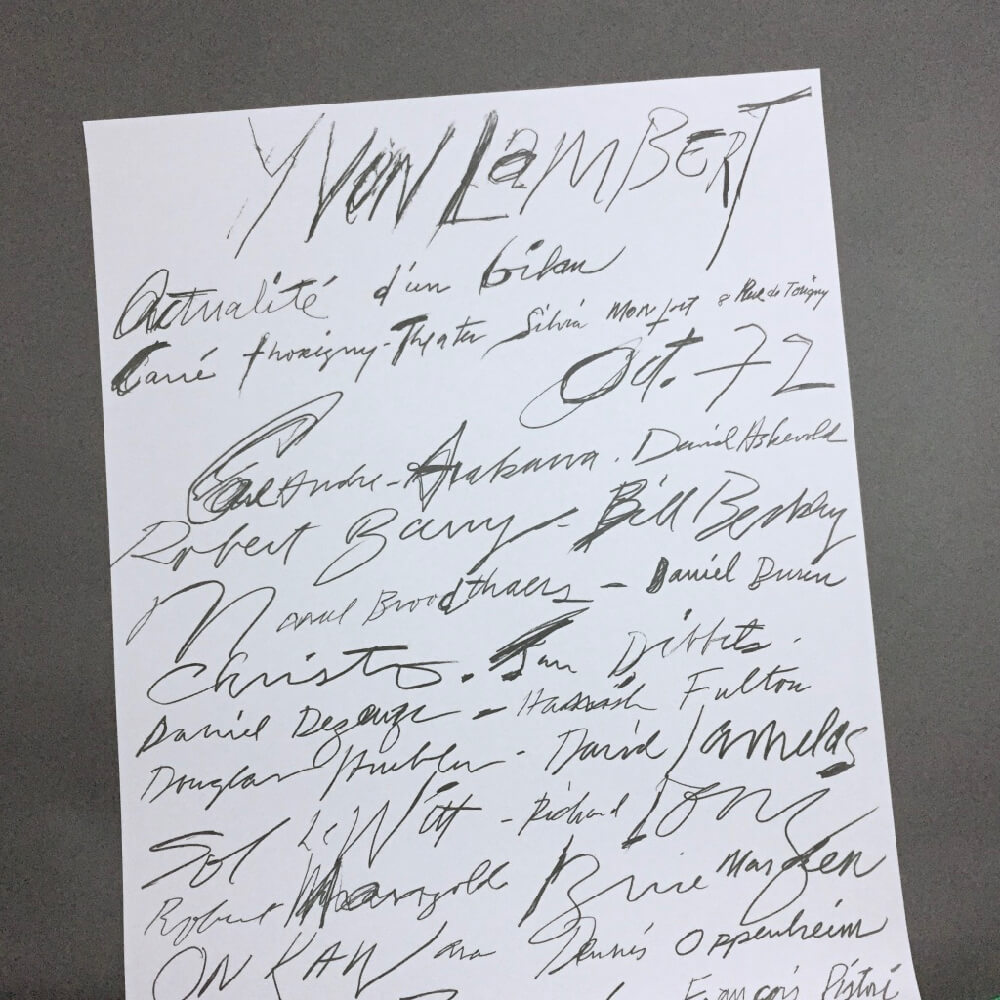 YVON LAMBERT
Actualité d'un bilan
Carré Thorigny - Theater Silvia Monfort 8 Rue de Torigny
Oct. 72
Carl Andre - Arakawa . David Askevold
Robert Barry - Bill Beckley
Marcel Broodthaers - Daniel Buren
Christo . Jan Dibbets .
Daniel Dezeuze - Hamish Fulton
Douglas Huebler - David Lamelas
Sol LeWitt - Richard Long
Robert Mangold Brice Marden
ON KAWara Dennis Oppenheim
François Ristori